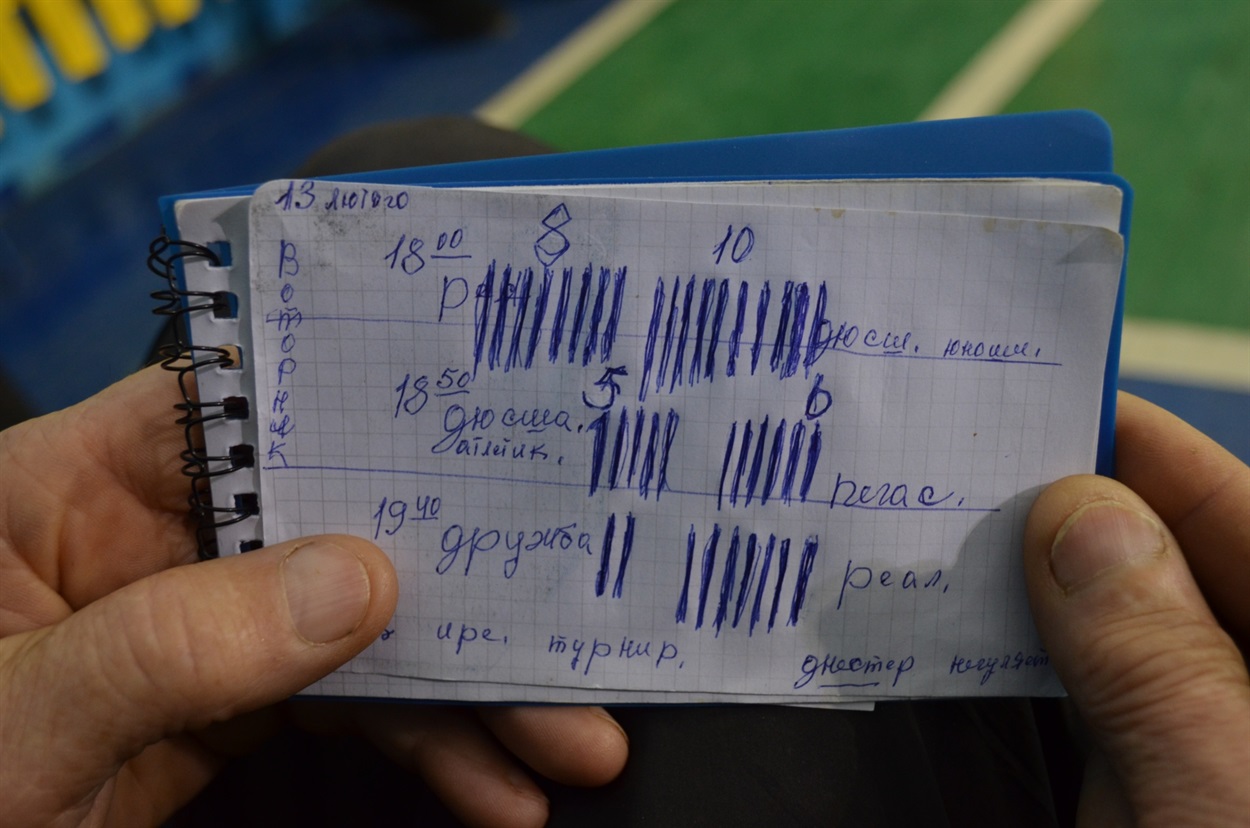 13 лютого
Воторник
18 00 8 10
дюсш. юнош.
18 50 5 6
дюсша.
атлтик. пегас.
19 40 дружба реал.
ире. турнир.
днестер